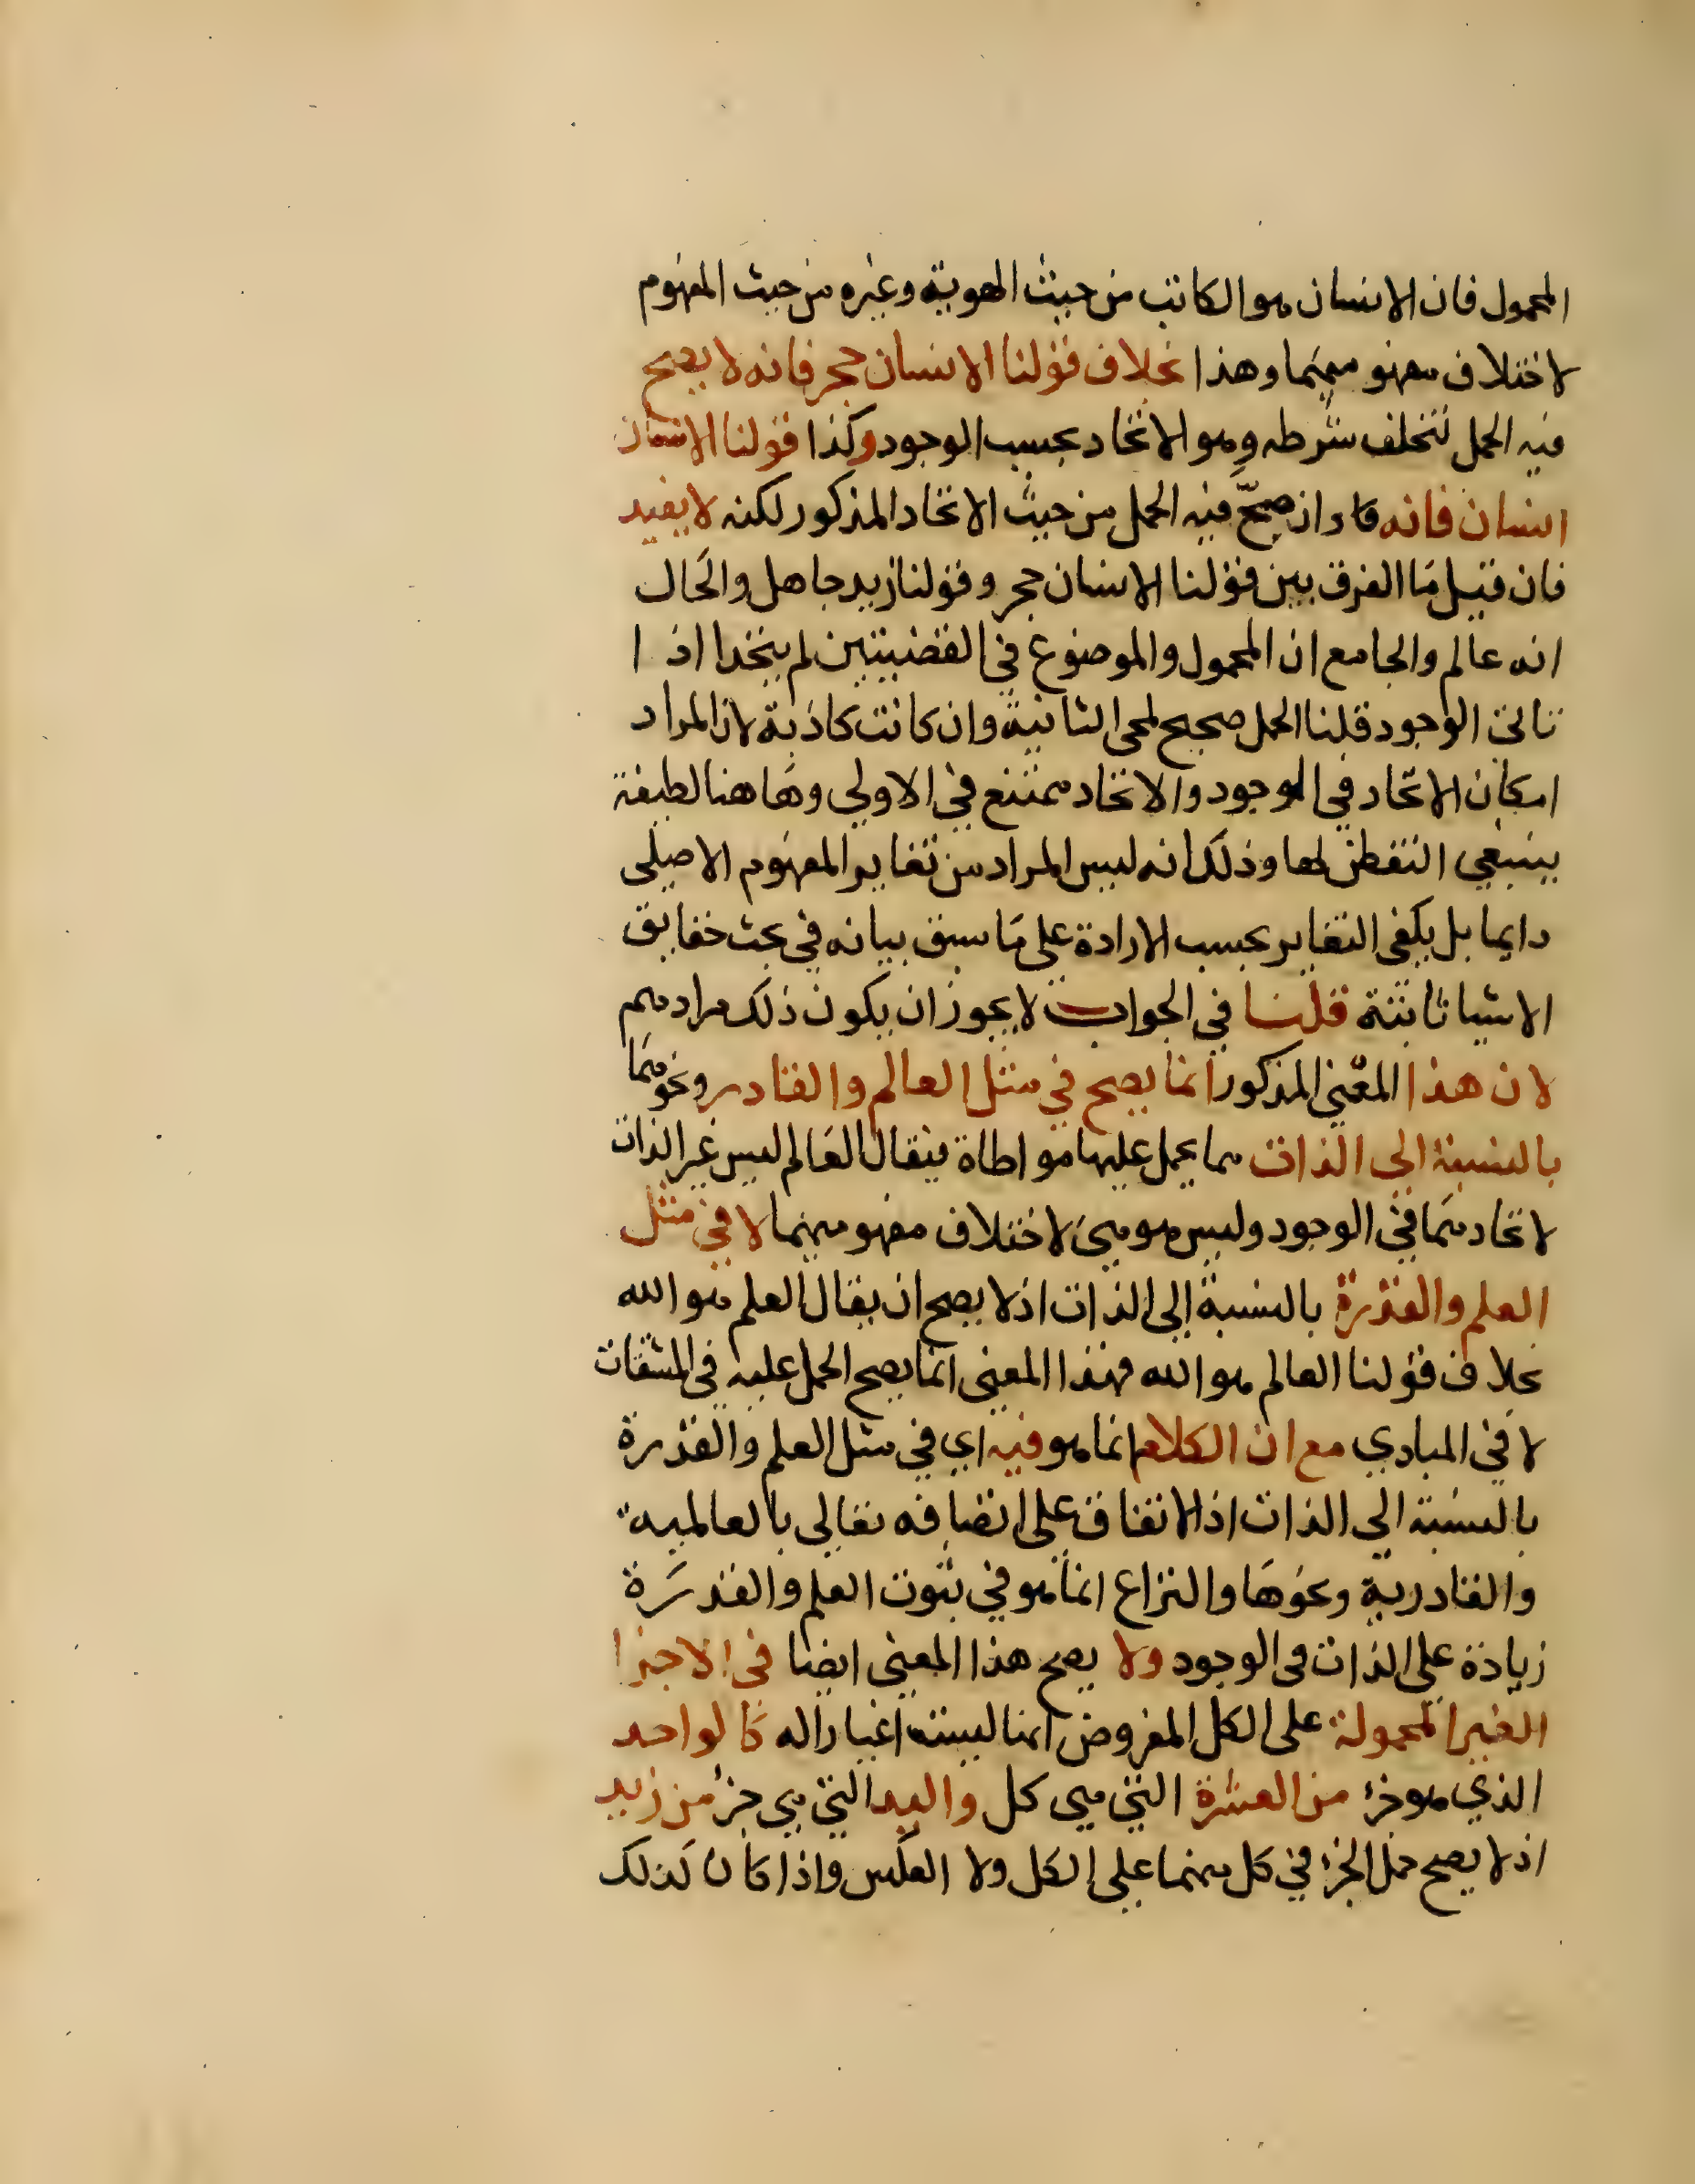 المحمول فان الانسان هو الكاتب من حيث الهوية وغيره من حيث المفهوم
لاختلاف مفهوميهما وهذا بخلاف قولنا الانسان حجر فانه لا يصح
فيه الحمل لتخلف شرطه وهو الاتحاد بحسب الوجود وكذا قولنا الانسان
انسان فانه وان صحّ فيه الحمل من حيث الاتحاد المذكور لكنه لا يفيد
فان قيل ما الفرق بين قولنا الانسان حجر وقولنا زيد جاهل والحال
انه عالم والجامع ان المحمول والموضوع في القضيتين لم يتحدا
الوجود قلنا الحمل صحيح الثانية وان كانت كاذبة لان المراد
امكان الاتحاد في الوجود والاتحاد ممتنع في الاولي وهاهنا لطيفة
ينبغي التفطن لها وذلك انه ليس المراد من تغاير المفهوم الاصلي
دايما بل يكفي التغاير بحسب الارادة علي ما سبق بيانه في بحث حقايق
الاشيا ثابتة قلنا في الجواب لا يجوز ان يكون ذلك مرادهم
لان هذا المعني المذكور انما يصح في مثل العالم والقادر ونحوهما
بالنسبة الي الذات مما يحمل عليها مواطاة فيقال العالم ليس غير الذات
لاتحادهما في الوجود وليس هو هي لاختلاف مفهوميهما لا في مثل
العلم والقدرة بالنسبة الي الذات اذ لا يصح ان يقال العلم هو الله
بخلاف قولنا العالم هو الله فهذا المعني انما يصح الحمل عليه في المشتقات
لا في المبادي مع ان الكلام انما هو فيه اي في مثل العلم والقدرة
بالنسبة الي الذات اذ الاتفاق علي اتصافه تعالي بالعالمية
والقادرية ونحوها والنزاع انما هو في ثبوت العلم والقدرة
زيادة علي الذات في الوجود ولا يصح هذا المعني ايضا في الاجزا
الغير المحمولة علي الكل المفروض انها ليست اغيارا له كالواحد
الذي هو جزء من العشرة التي هي كل واليد التي هي جزء من زيد
اذ لا يصح حمل الجزء في كل منهما علي الكل ولا العكس واذا كان كذلك